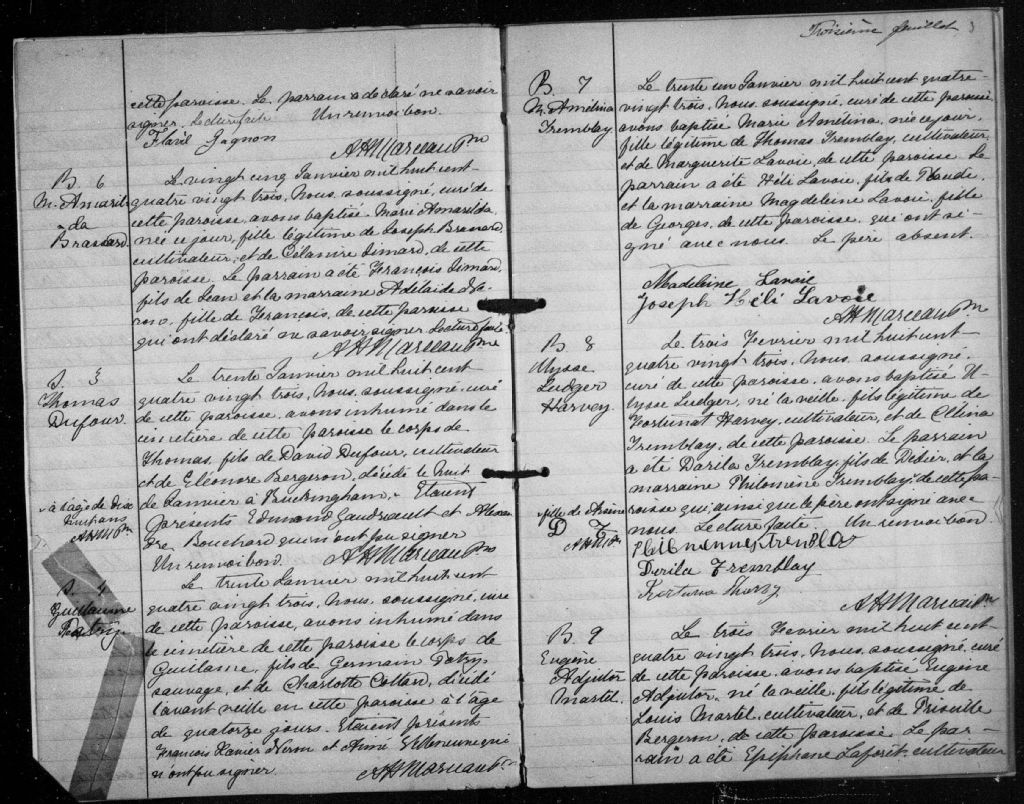 cette paroisse. Le parrain a déclaré ne savoir
signer. Lecture faite Un renvoi bon.
Gagnon
AHMarceau Ptre
B. 6
M. Amaril-
da
Brassard
Le vingt cinq Janvier mil huit cent
quatre vingt trois, Nous, soussigné, curé de
cette paroisse, avons baptisé Marie Amarilda,
née ce jour, fille légitime de Joseph Brassard,
cultivateur, et de Célanire Simard, de cette
paroisse. Le parrain a été François Simard,
fils de Jean et la marraine Adelaide
fille de François, de cette paroisse
qui ont déclaré ne savoir signer Lecture faite
AHMarceau Ptre
S. 3
Thomas
Dufour.
Le trente Janvier mil huit cent
quatre vingt trois, Nous, soussigné, curé
de cette paroisse, avons inhumé dans le
cimetière de cette paroisse le corps de
Thomas, fils de David Dufour, cultivateur
et de Eléonore Bergeron, décédé le huit
de Janvier à Buckingham, Etaient
présents Edmond Gaudreault et Alexan
dre Bouchard qui n'ont pu signer
Un renvoi bon. AHMarceau Ptre
à l'âge de dix
huit ans
AHM Ptre
S. 4
Guillaume
Patry
Le trente Janvier mil huit cent
quatre vingt trois, Nous, soussigné, curé
de cette paroisse, avons inhumé dans
le cimetière de cette paroisse le corps de
Guilaume, fils de Germain Patry,
sauvage, et de Charlotte Collard, décédé
l'avant veille en cette paroisse à l'âge
de quatorze jours. Etaient présents
François Xavier Néron et Aimé Villeneuve qui
n'ont pu signer. AHMarceau Ptre
Troisième feuillet 3
B. 7
M. Amélina
Tremblay.
Le trente un Janvier mil huit cent quatre-
vingt trois, Nous, soussigné, curé de cette paroisse,
avons baptisé Marie Amélina, née ce jour,
fille légitime de Thomas Tremblay, cultivateur,
et de Marguerite Lavoie, de cette paroisse. Le
parrain a été Héli Lavoie, fils de
et la marraine Magdeleine Lavoie, fille
de Georges, de cette paroisse, qui ont si-
gné avec nous. Le père absent.
Madeleine Lavoie
Joseph Héli Lavoie
AHMarceau Ptre
B. 8
Ulysse
Ludger
Harvey.
Le trois Fevrier mil huit cent
quatre vingt trois, Nous, soussigné,
curé de cette paroisse, avons baptisé U
lysse Ludger, né la veille, fils légitime de
Fortunat Harvey, cultivateur, et de Célina
Tremblay, de cette paroisse. Le parrain
a été Darila Tremblay, fils de Didier, et la
marraine Philomène Tremblay, de cette pa-
roisse qui, ainsi que le père ont signé avec
nous. Lecture faite. Un renvoi bon.
fille de
D T
AHM Ptre
Derila Tremblay
AHMarceau Ptre
B. 9
Eugène
Adjutor
Martel.
Le trois Fevrier mil huit cent
quatre vingt trois, Nous, soussigné, curé
de cette paroisse, avons baptisé Eugène
Adjutor, né la veille, fils légitime de
Louis Martel, cultivateur, et de Priscille
Bergeron, de cette paroisse. Le par-
rain a été Epiphane Laforêt, cultivateur